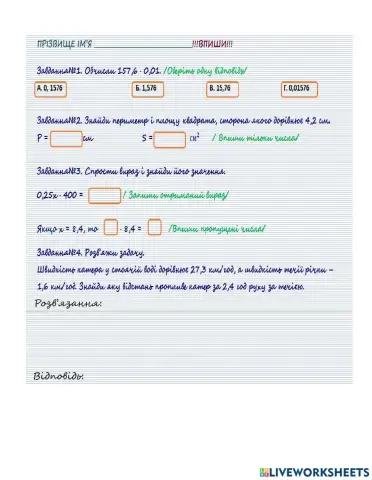 ПРІЗВИЩЕ ІМ'Я ____________________!!!ВПИШИ!!!
Завдання№1. Обчисли 157,6 · 0,01. /Оберіть одну відповідь/
А. 0, 1576 Б. 1,576 В. 15,76 Г. 0,01576
Завдання№2. Знайди периметр і площу квадрата, сторона якого дорівнює 4,2 см.
P = см S = см² / Впиши тільки числа/
Завдання№3. Спрости вираз і знайди його значення.
0,25x · 400 = / Запиши отриманий вираз/
Якщо x = 8,4, то · 8,4 = /Впиши пропущені числа/
Завдання№4. Розв'яжи задачу.
Швидкість катера у стоячій воді дорівнює 27,3 км/год, а швидкість течії річки –
1,6 км/год. Знайди яку відстань пропливе катер за 2,4 год руху за течією.
Розв'язання:
Відповідь:
LIVEWORKSHEETS